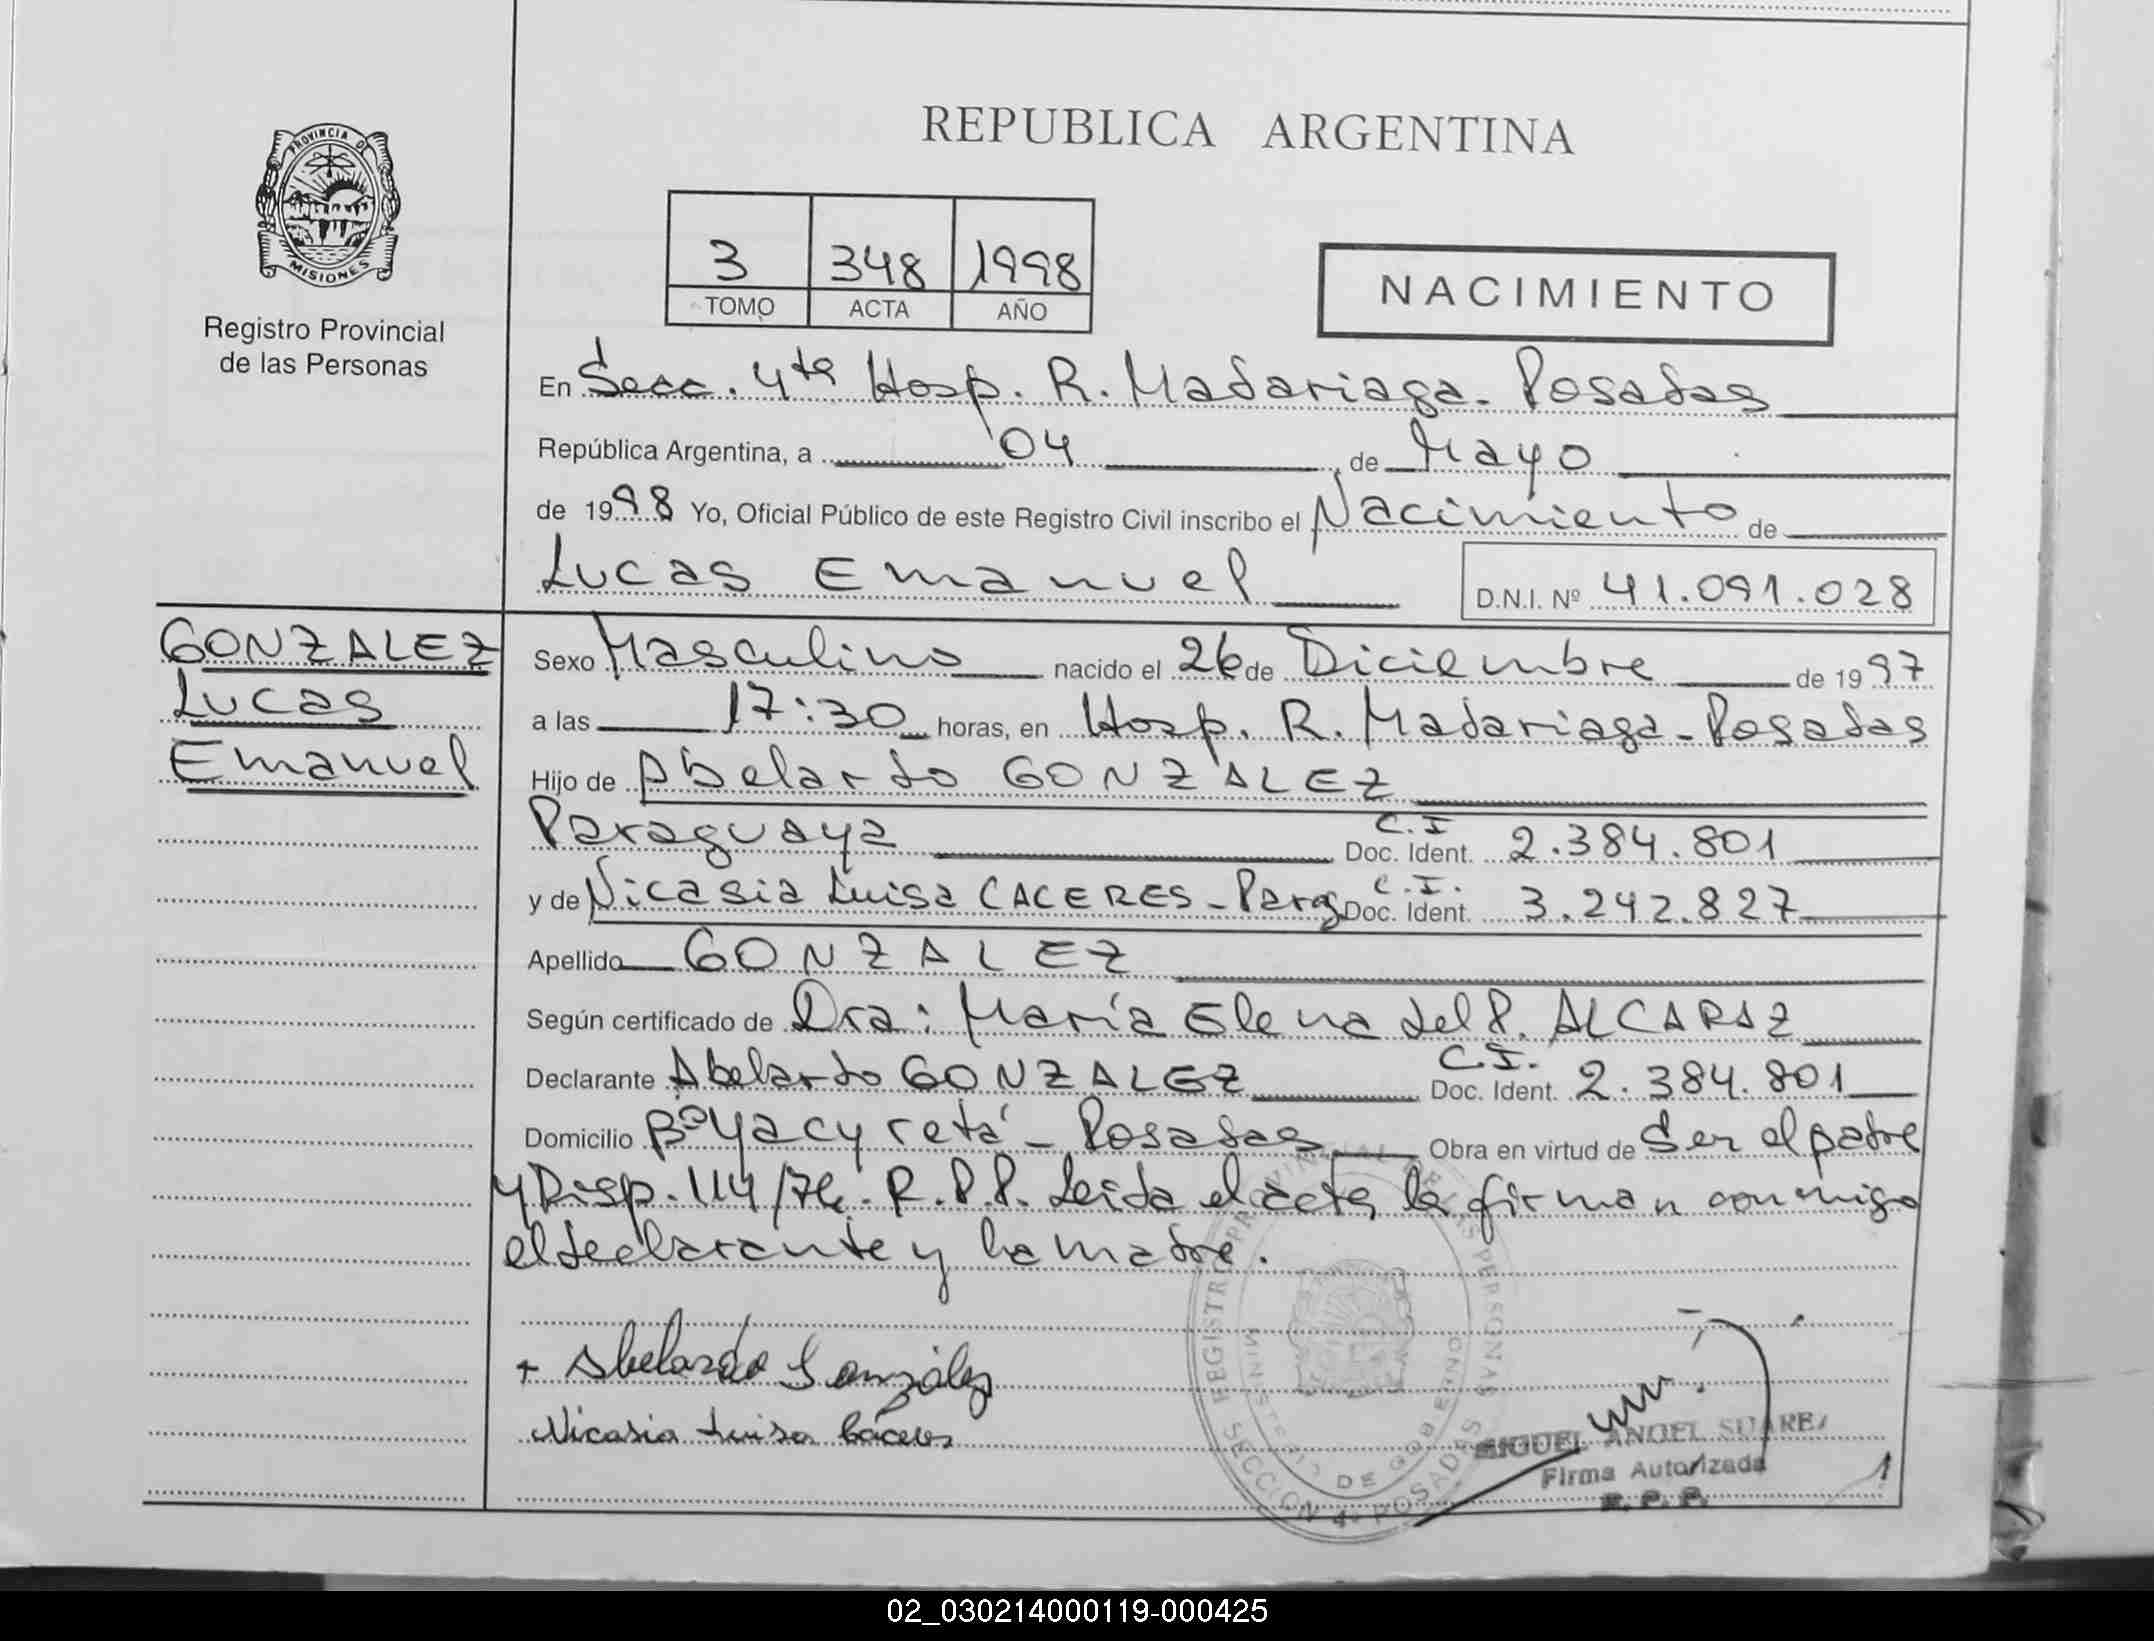 PROVINCIA D
MISIONES
Registro Provincial
de las Personas
REPUBLICA ARGENTINA
3 348 1998
TOMO ACTA AÑO
NACIMIENTO
En Secc. 4ta Hosp. R. Madariaga - Posadas
República Argentina, a 04 de Mayo
de 1998 Yo, Oficial Público de este Registro Civil inscribo el Nacimiento de
Lucas Emanuel D.N.I. Nº 41.091.028
GONZALEZ
Lucas
Emanuel
Sexo Masculino nacido el 26 de Diciembre de 1997
a las 17:30 horas, en Hosp. R. Madariaga - Posadas
Hijo de Abelardo GONZALEZ
Paraguaya C.I Doc. Ident. 2.384.801
y de Nicasia Luisa CACERES - Parag C.I. Doc. Ident. 3.242.827
Apellido GONZALEZ
Según certificado de Dra: María Elena del P. ALCARAZ
Declarante Abelardo GONZALEZ C.I. Doc. Ident. 2.384.801
Domicilio Bº Yacyretá - Posadas Obra en virtud de Ser el padre
y Disp. 114/76. R.P.P. Leida el acta, la firman conmigo
el declarante y la madre.
+ Abelardo González
Nicasia Luisa Cáceres
REGISTRO PROVINCIAL DE LAS PERSONAS
SECCION 4ª POSADAS
MINISTERIO DE GOBIERNO
MIGUEL ANGEL SUAREZ
Firma Autorizada
R. P. P.
1
02_030214000119-000425